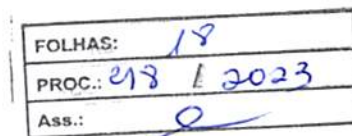 FOLHAS: 18
PROC.: 218 / 2023
Ass.: